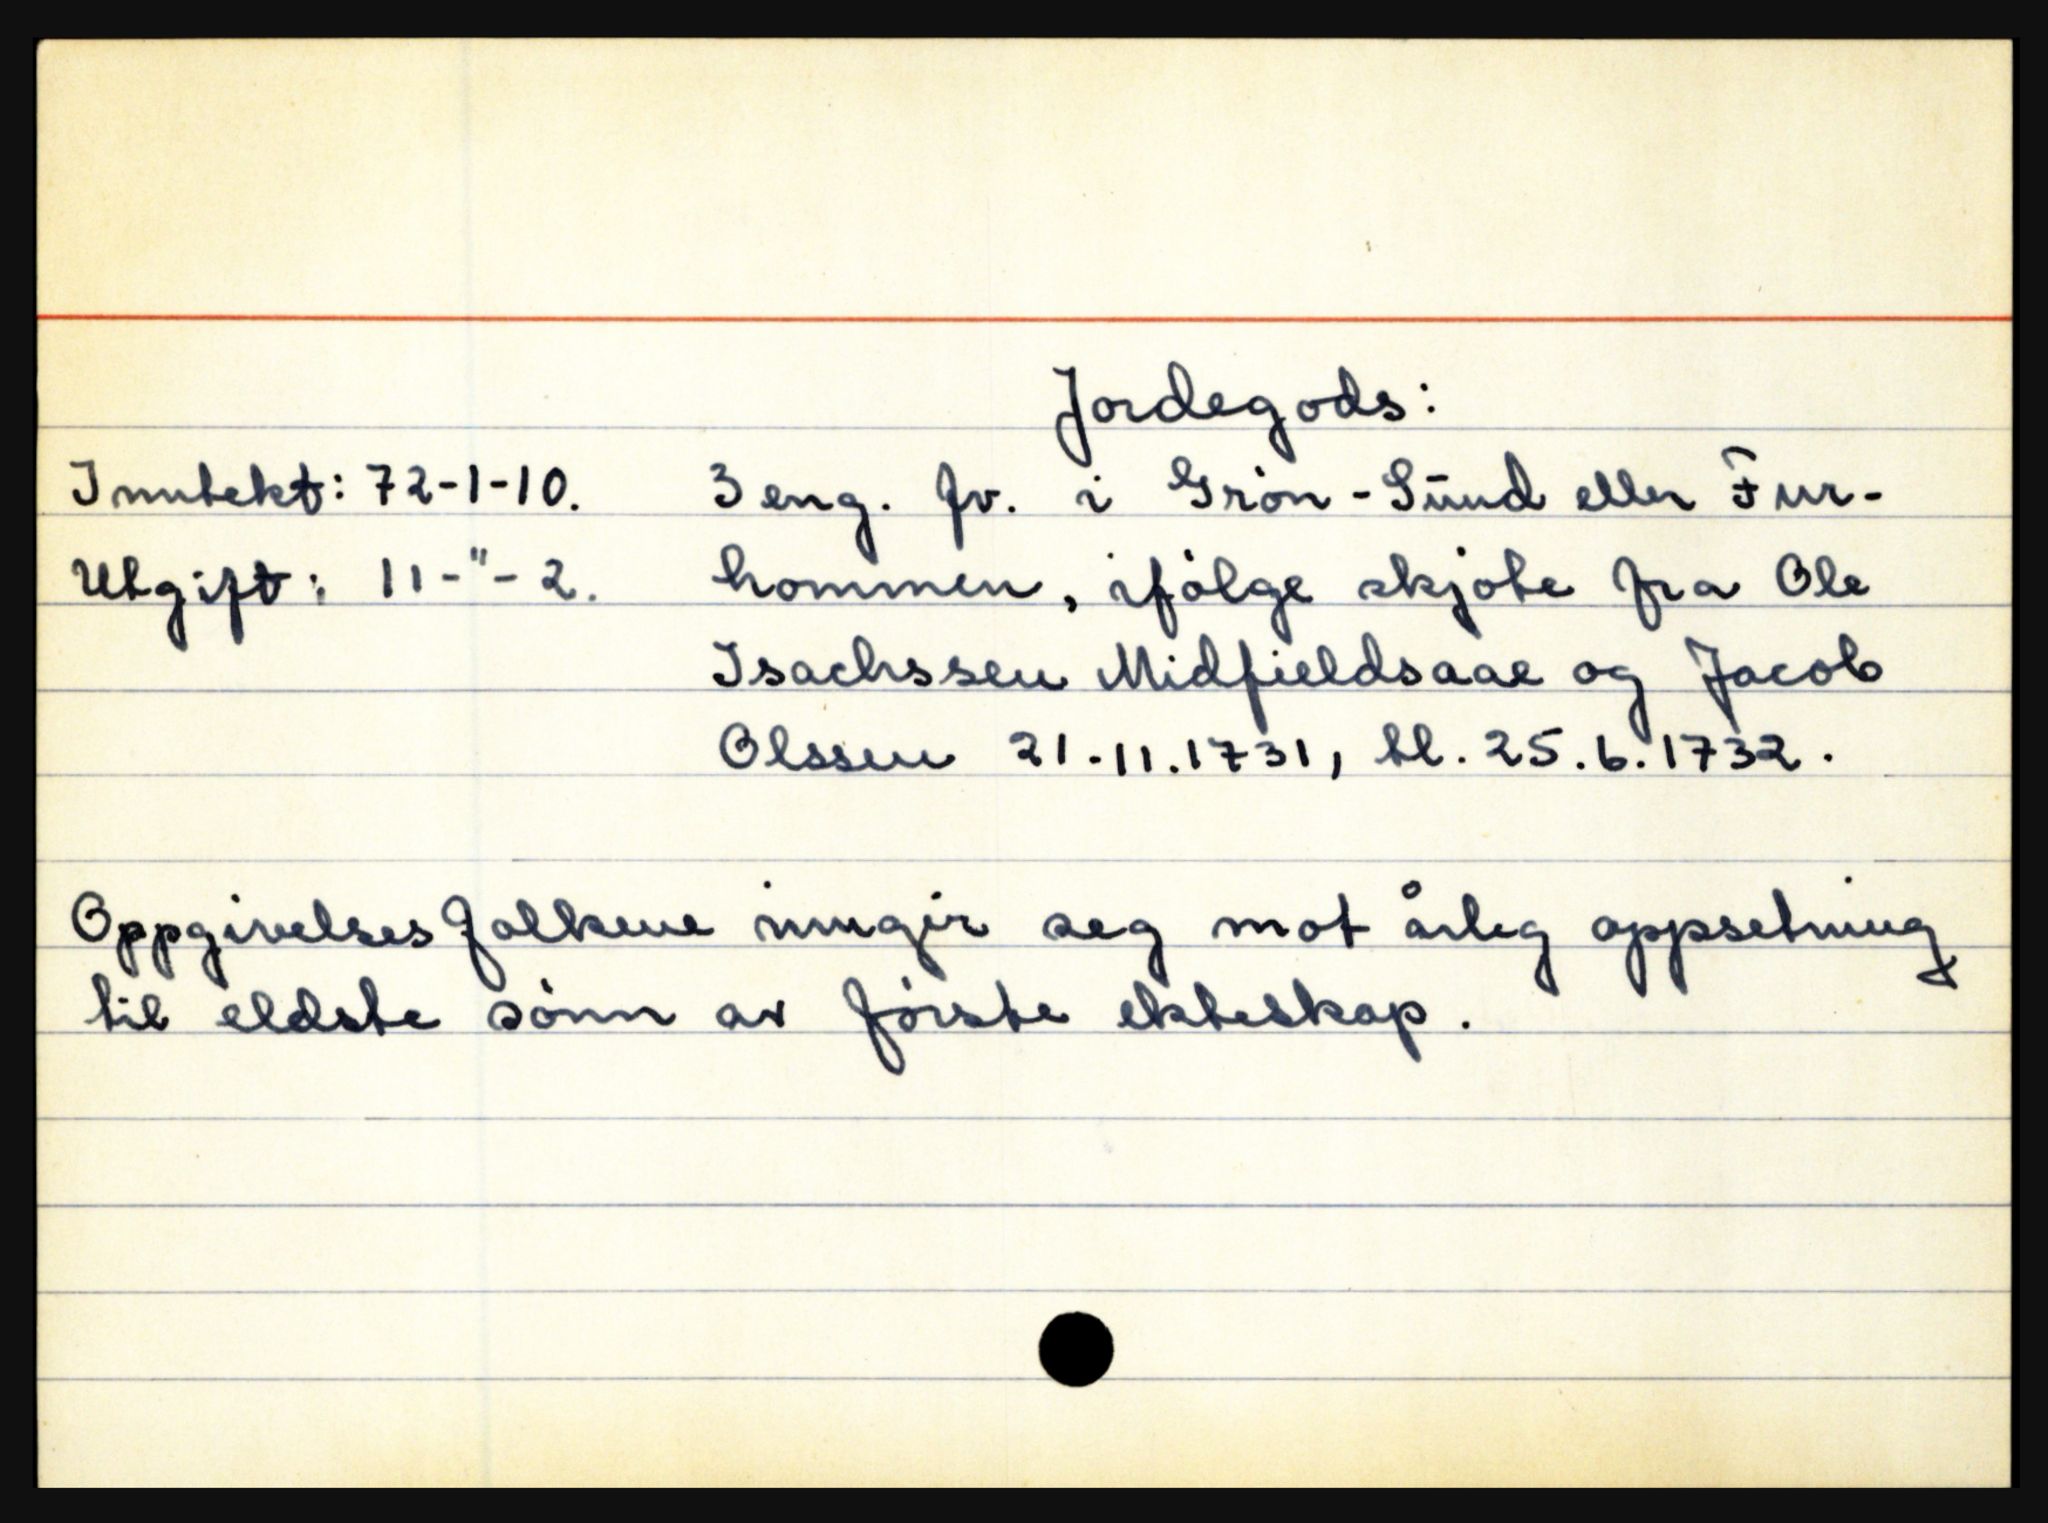 Jordegods:
Inntekt: 72-1-10. 3 eng. fv. i Grön-Sund eller Fur-
Utgift: 11-"-2. hommen, ifölge skjöte fra Ole
Isachssen Midfieldsaae og Jacob
Olssen 21.11.1731, tl. 25.6.1732.
Oppgivelsesfolkene inngir seg mot årleg oppsetning
til eldste sönn av förste ekteskap.